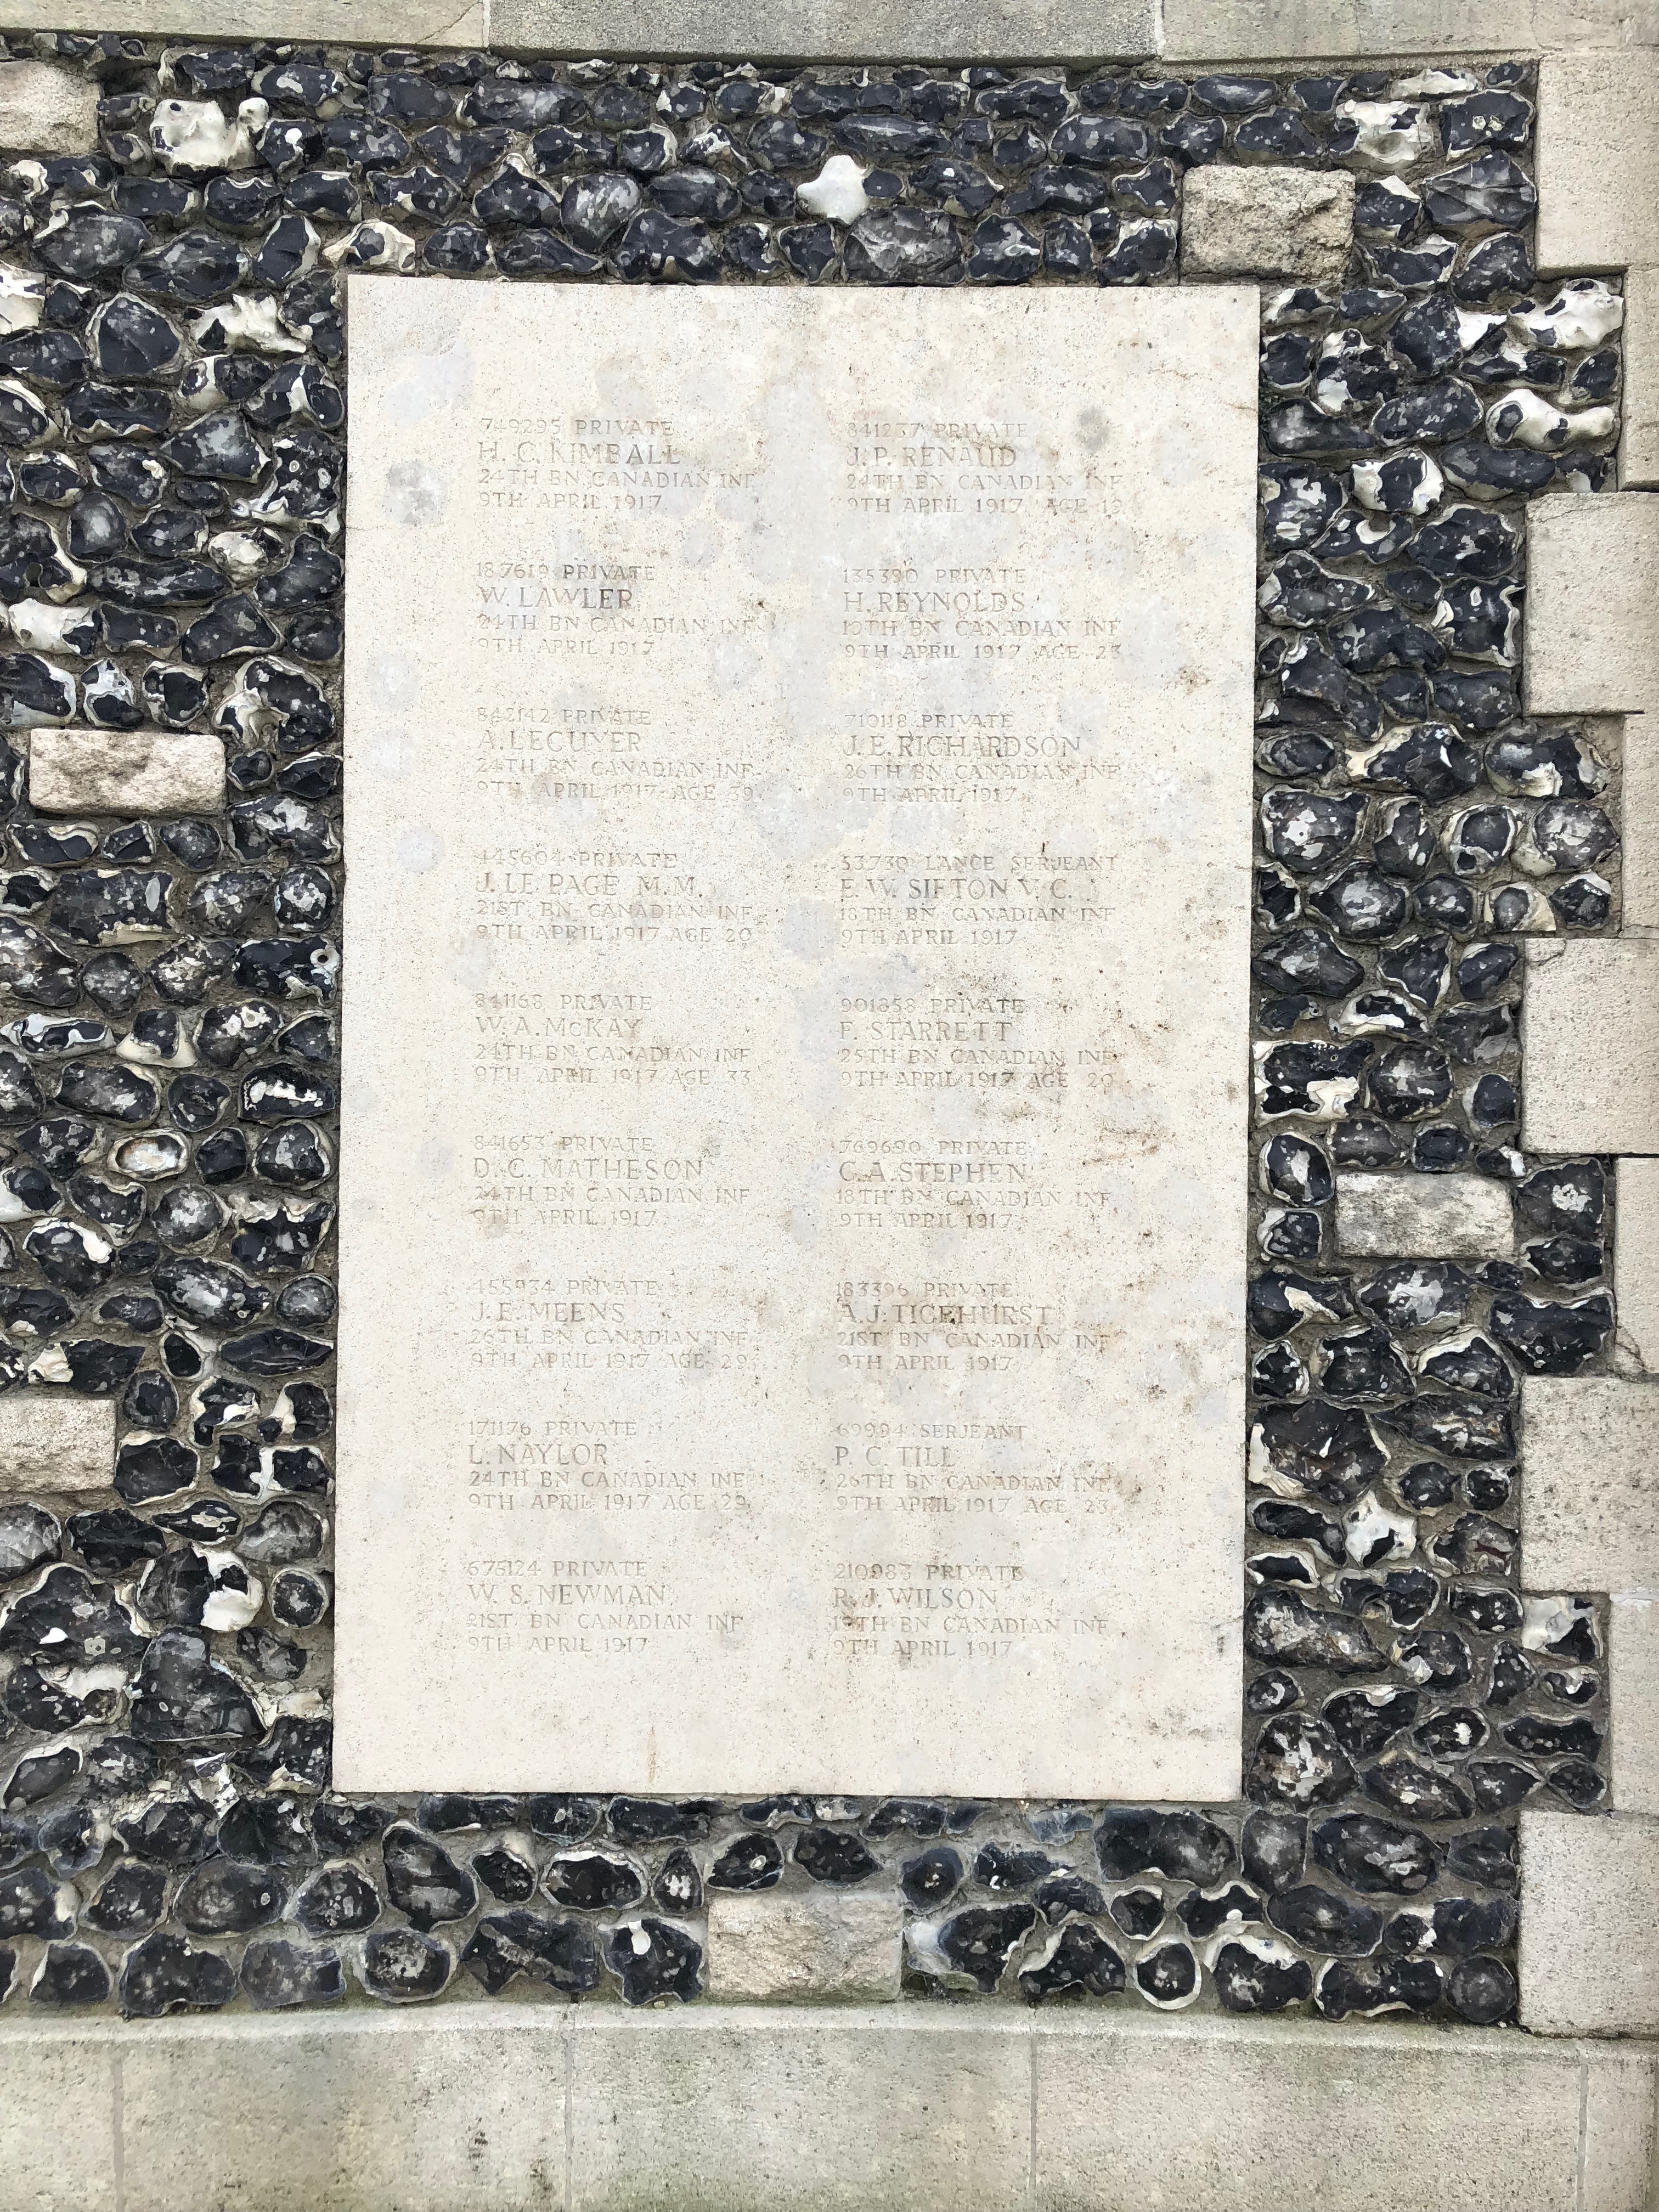 749295 PRIVATE
H. C. KIMBALL
24TH BN CANADIAN INF
9TH APRIL 1917
187619 PRIVATE
W. LAWLER
24TH BN CANADIAN INF
9TH APRIL 1917
842142 PRIVATE
A. LECUYER
24TH BN CANADIAN INF
9TH APRIL 1917 AGE 39
445604 PRIVATE
J. LE PAGE M.M.
21ST BN CANADIAN INF
9TH APRIL 1917 AGE 20
841168 PRIVATE
W. A. McKAY
24TH BN CANADIAN INF
9TH APRIL 1917 AGE 33
841653 PRIVATE
D. C. MATHESON
24TH BN CANADIAN INF
9TH APRIL 1917
455934 PRIVATE
J. E. MEENS
26TH BN CANADIAN INF
9TH APRIL 1917 AGE 29
171176 PRIVATE
L. NAYLOR
24TH BN CANADIAN INF
9TH APRIL 1917 AGE 29
675124 PRIVATE
W. S. NEWMAN
21ST BN CANADIAN INF
9TH APRIL 1917
841237 PRIVATE
J. P. RENAUD
24TH BN CANADIAN INF
9TH APRIL 1917 AGE 19
135390 PRIVATE
H. REYNOLDS
BN CANADIAN INF
9TH APRIL 1917 AGE 23
710118 PRIVATE
J. E. RICHARDSON
26TH BN CANADIAN INF
9TH APRIL 1917
53730 LANCE SERJEANT
E. W. SIFTON V. C.
18TH BN CANADIAN INF
9TH APRIL 1917
901858 PRIVATE
F. STARRETT
25TH BN CANADIAN INF
9TH APRIL 1917 AGE 20
769690 PRIVATE
C. A. STEPHEN
18TH BN CANADIAN INF
9TH APRIL 1917
183396 PRIVATE
A. J. TICEHURST
21ST BN CANADIAN INF
9TH APRIL 1917
69994 SERJEANT
P. C. TILL
26TH BN CANADIAN INF
9TH APRIL 1917 AGE 23
210983 PRIVATE
R. J. WILSON
19TH BN CANADIAN INF
9TH APRIL 1917